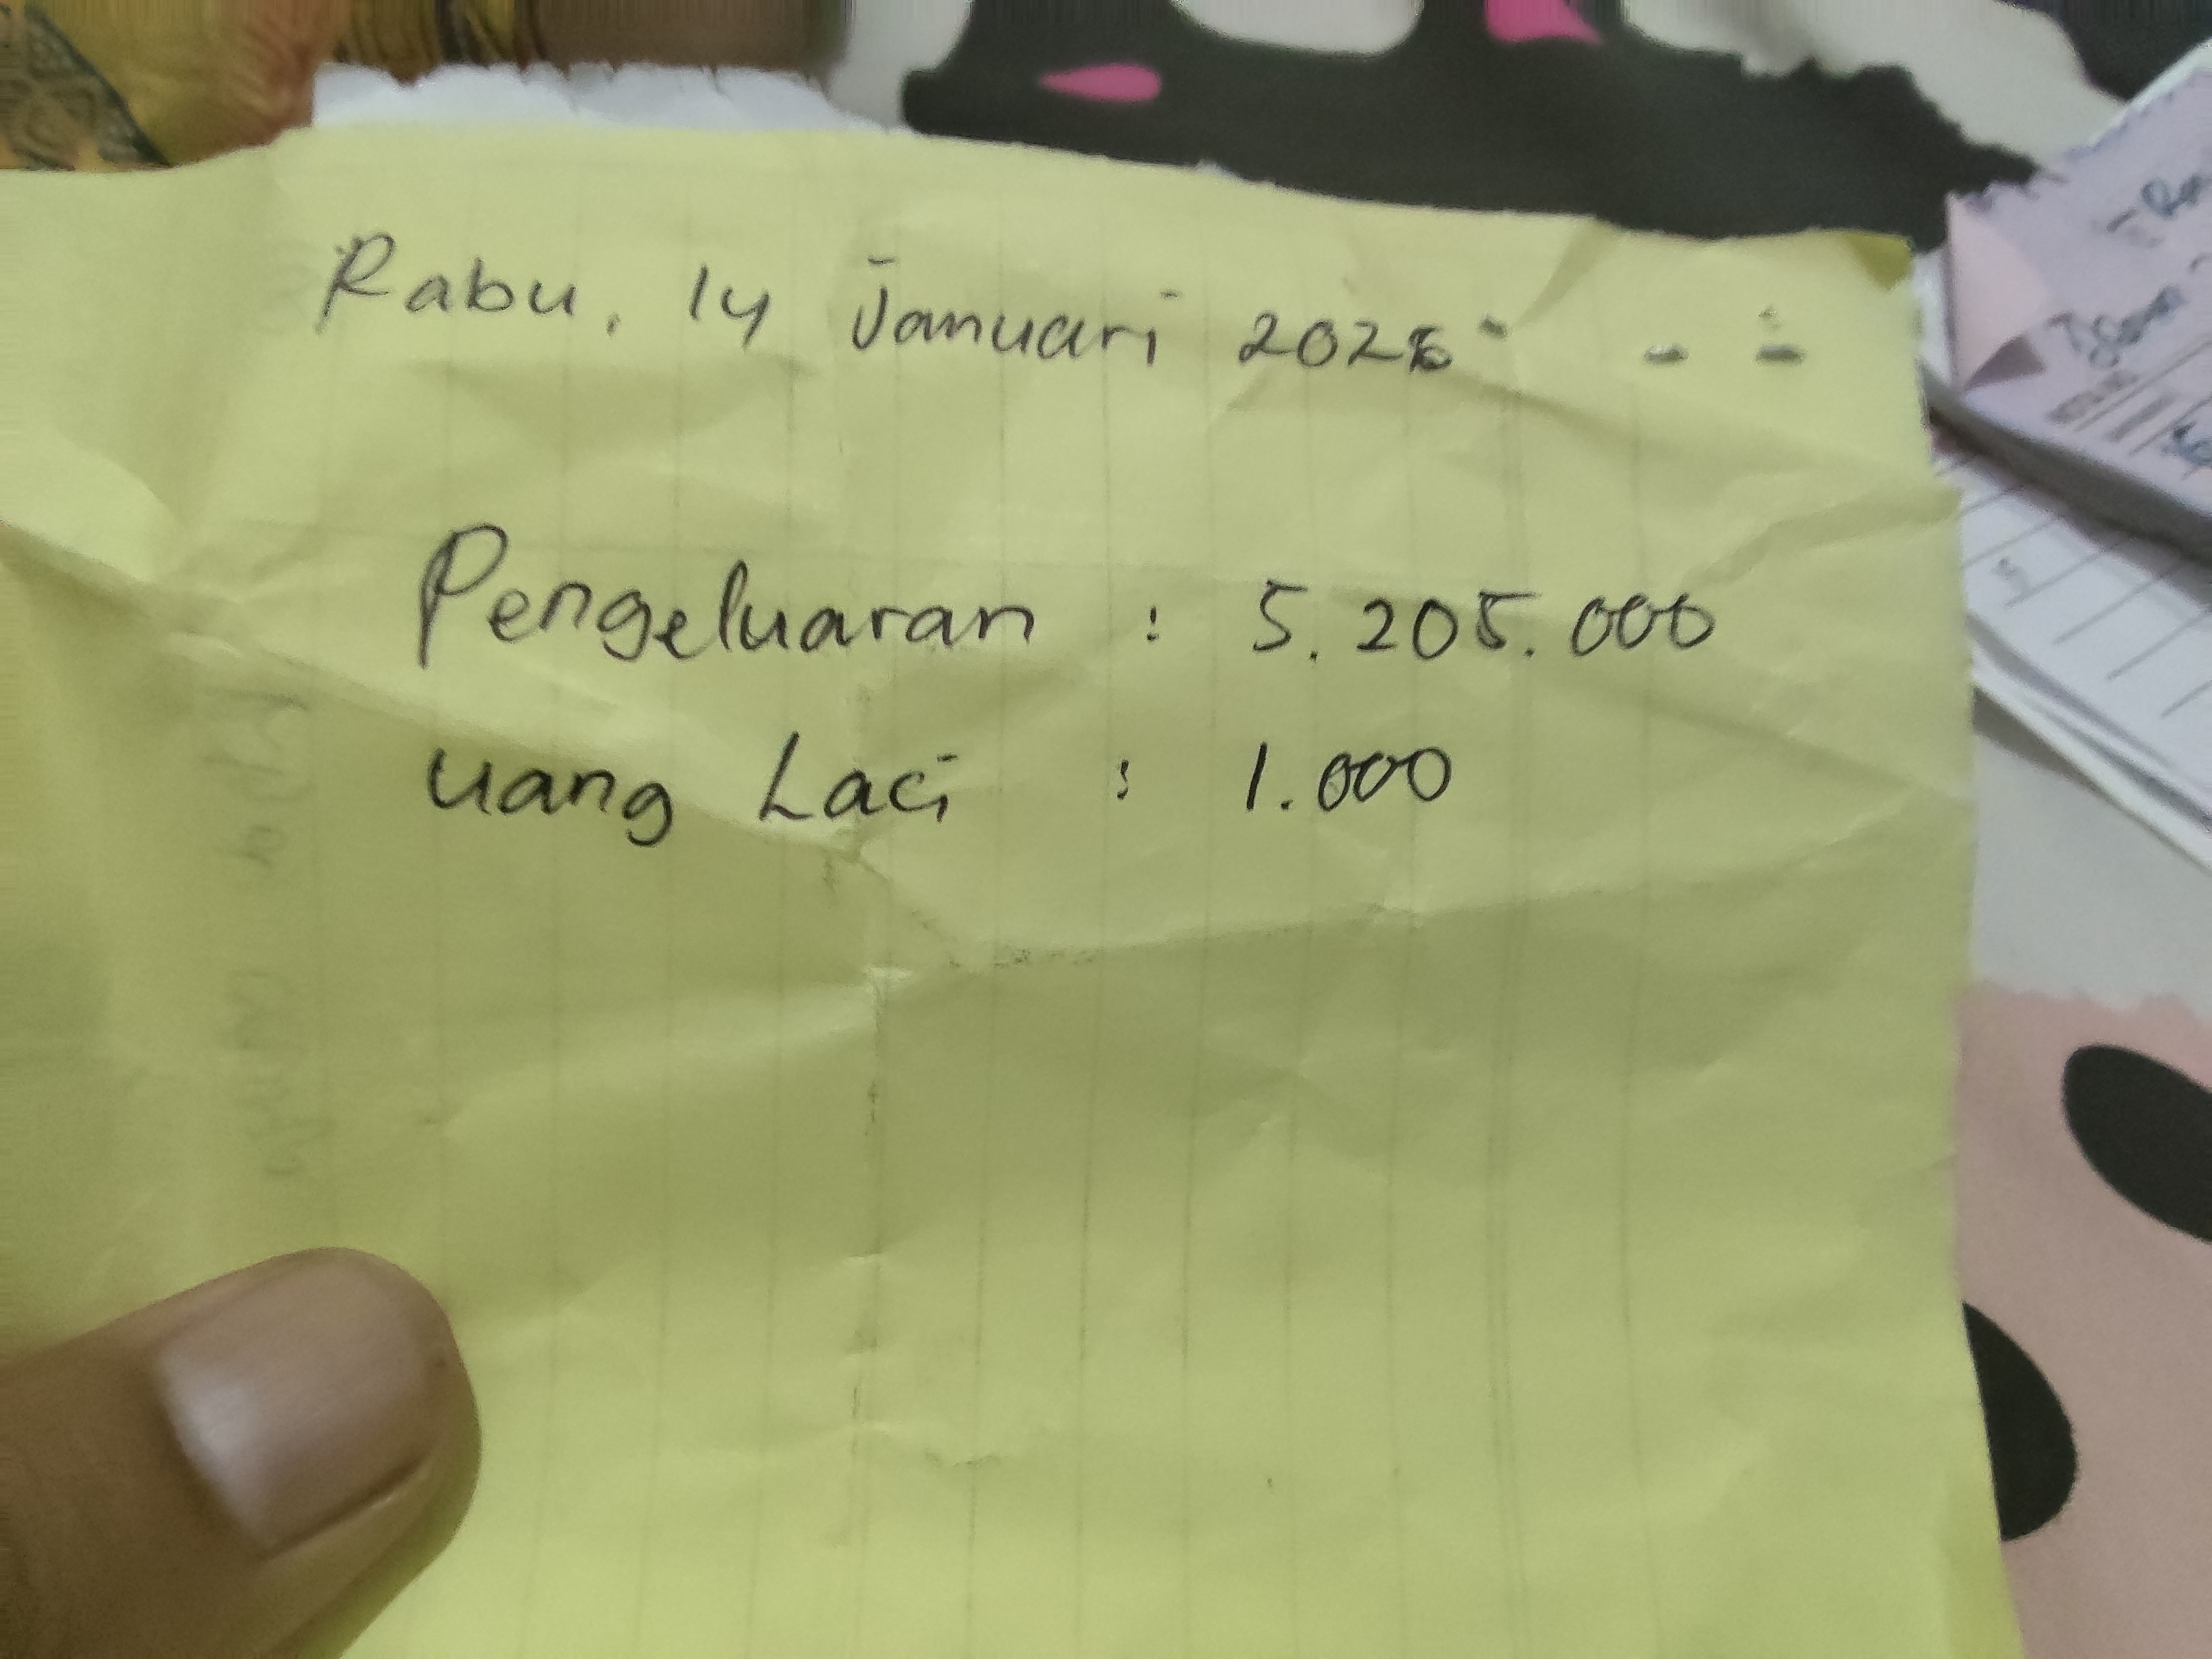 Rabu, 14 Januari 2026
Pengeluaran : 5.205.000
uang Laci : 1.000